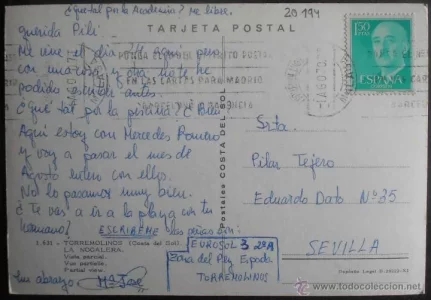 ¿Qué tal por la Academia? Me libre.
20194
TARJETA POSTAL
querida Pili
Me vine el día 1 de aquí pero
con una cosa y otra no te he
podido escribir antes.
¿Qué tal por la piscina? ¿Bien?
Aquí estoy con Mercedes Romero
y voy a pasar el mes de
Agosto entero con ellos.
No lo pasamos muy bien.
¿Te vas a ir a la playa con tu
hermano? ESCRIBEME las señas son:
EUROSOL 3 2º A
Zona del Rey Espada
TORREMOLINOS
un abrazo Mª Jose
3.831 - TORREMOLINOS (Costa del Sol)
LA NOGALERA
Vista parcial.
Vue partielle.
Partial view.
Postales COSTA DEL SOL
PONGA EL DISTRITO POSTAL
EN LAS CARTAS PARA MADRID
1,50 PTAS
ESPAÑA
Srta.
Pilar Tejero
Eduardo Dato Nº 35
SEVILLA
todocoleccion.net